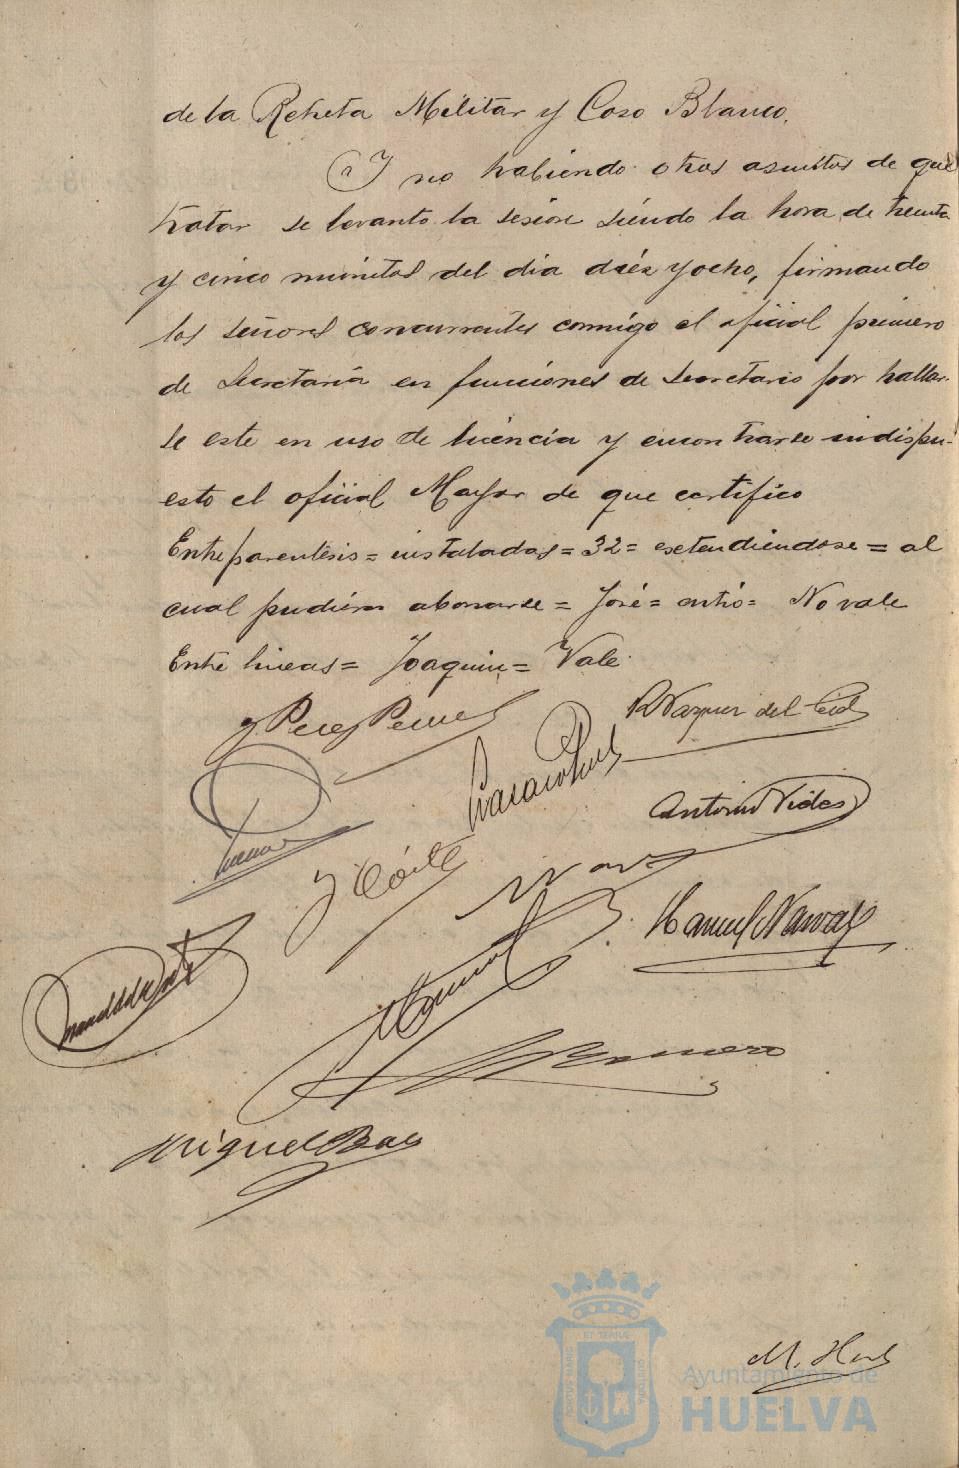 de la Retreta Militar y Coso Blanco.
Y no habiendo otros asuntos de que
tratar se levanto la sesion siendo la hora de treinta
y cinco minutos del dia diéz y ocho, firmando
los señores concurrentes conmigo el oficial primero
de Secretaría en funciones de Secretario por hallar-
se este en uso de licencia y encontrarse indispu-
esto el oficial Mayor de que certifico
Entre parentesis = instaladas = 32 = extendiendose = al
cual pudiera abonarse = José = entró = No vale
Entre lineas = Joaquin = Vale
R Vazquez del
Antonio Vides
Manuel Narvaez
Romero
Miguel Baez
M.
ET TERRAE
PORTUS MARIS
CUSTODIA
Ayuntamiento de
HUELVA